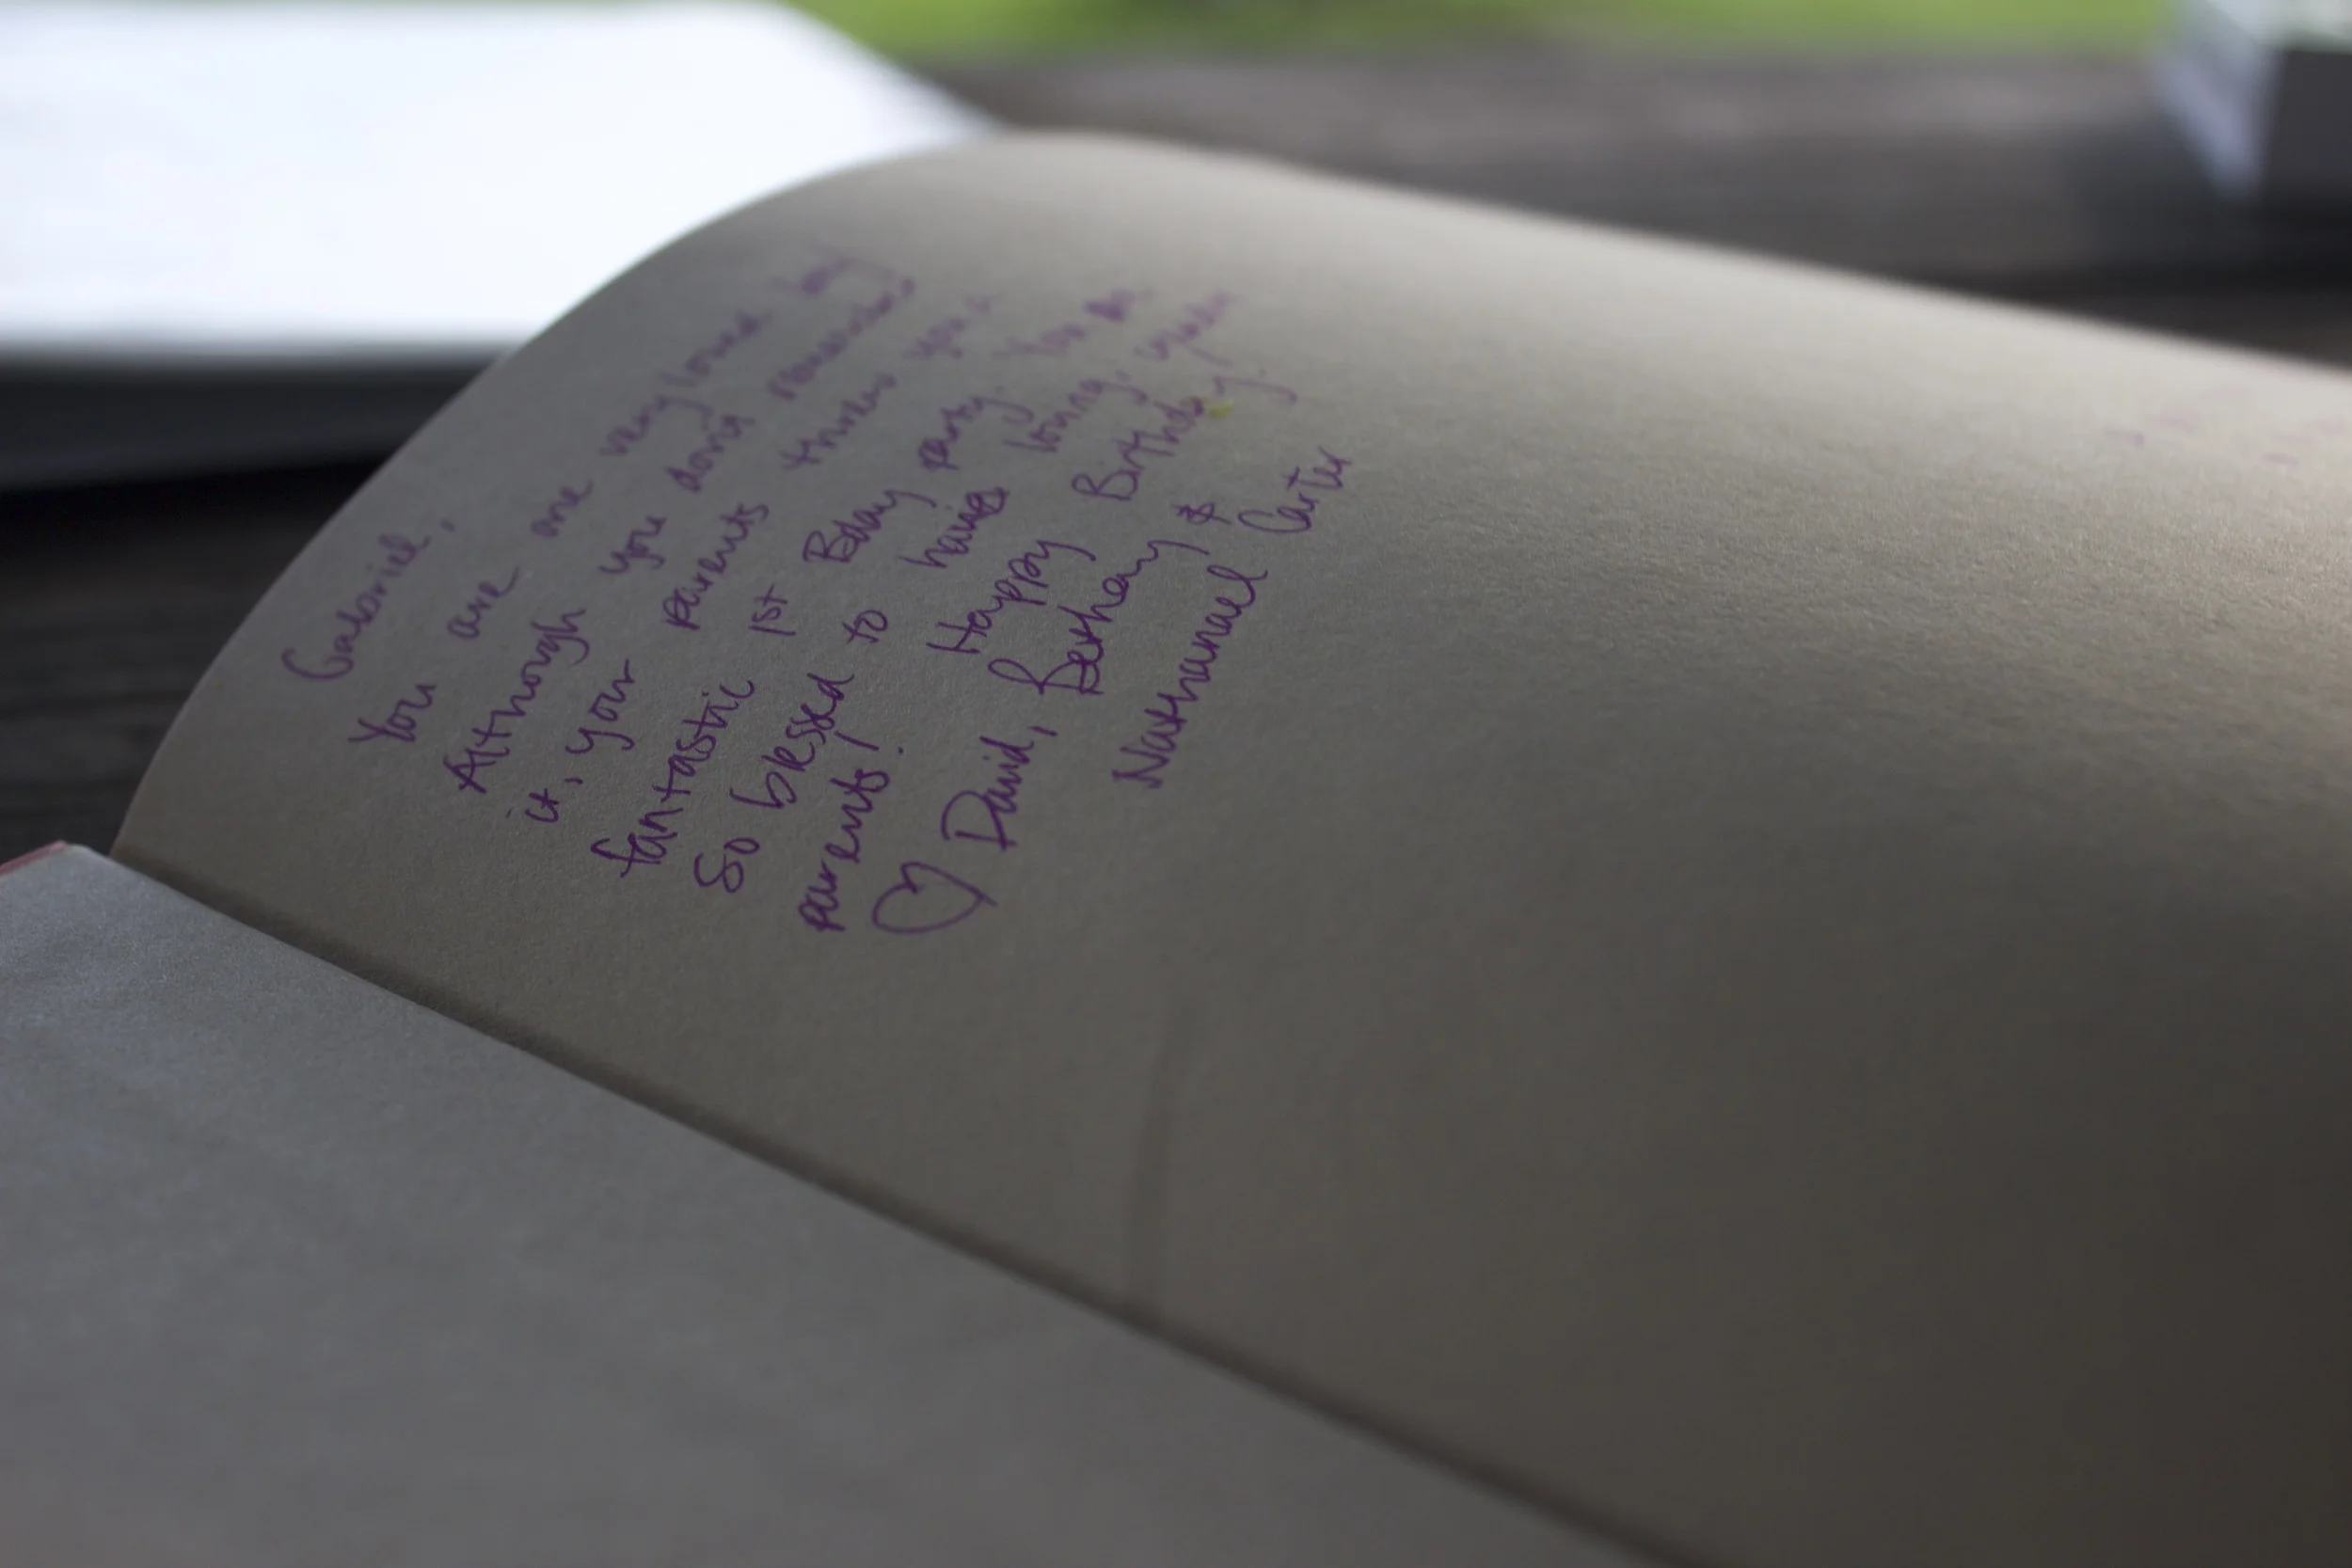 Gabriel,
You are one very loved boy
Although you don't remember
it, your parents threw you a
fantastic 1st Bday party. You are
so blessed to having loving,
parents! Happy Birthday!
♡ David, Bethany &
Nathanael Carter